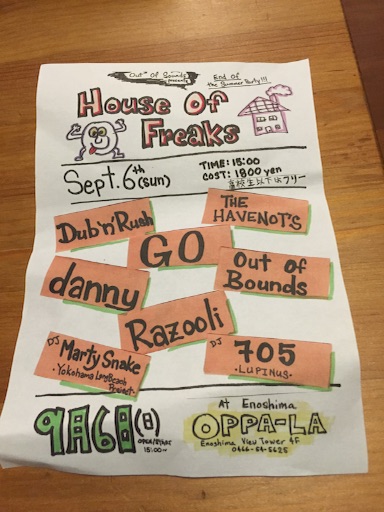 Out Of Sounds
presents
End Of
the Summer Party!!!
House Of
Freaks
Sept. 6th (sun)
TIME: 15:00
COST: 1800 yen
高校生以下はフリー
Dub'n'Rush
THE
HAVENOT'S
GO
danny
Out Of
Bounds
Razooli
DJ Marty Snake
・Yokohama Long Beach
Project・
DJ 705
・LUPINUS・
9月6日(日)
OPEN/START
15:00~
At Enoshima
OPPA-LA
Enoshima View Tower 4F
0466-54-5625